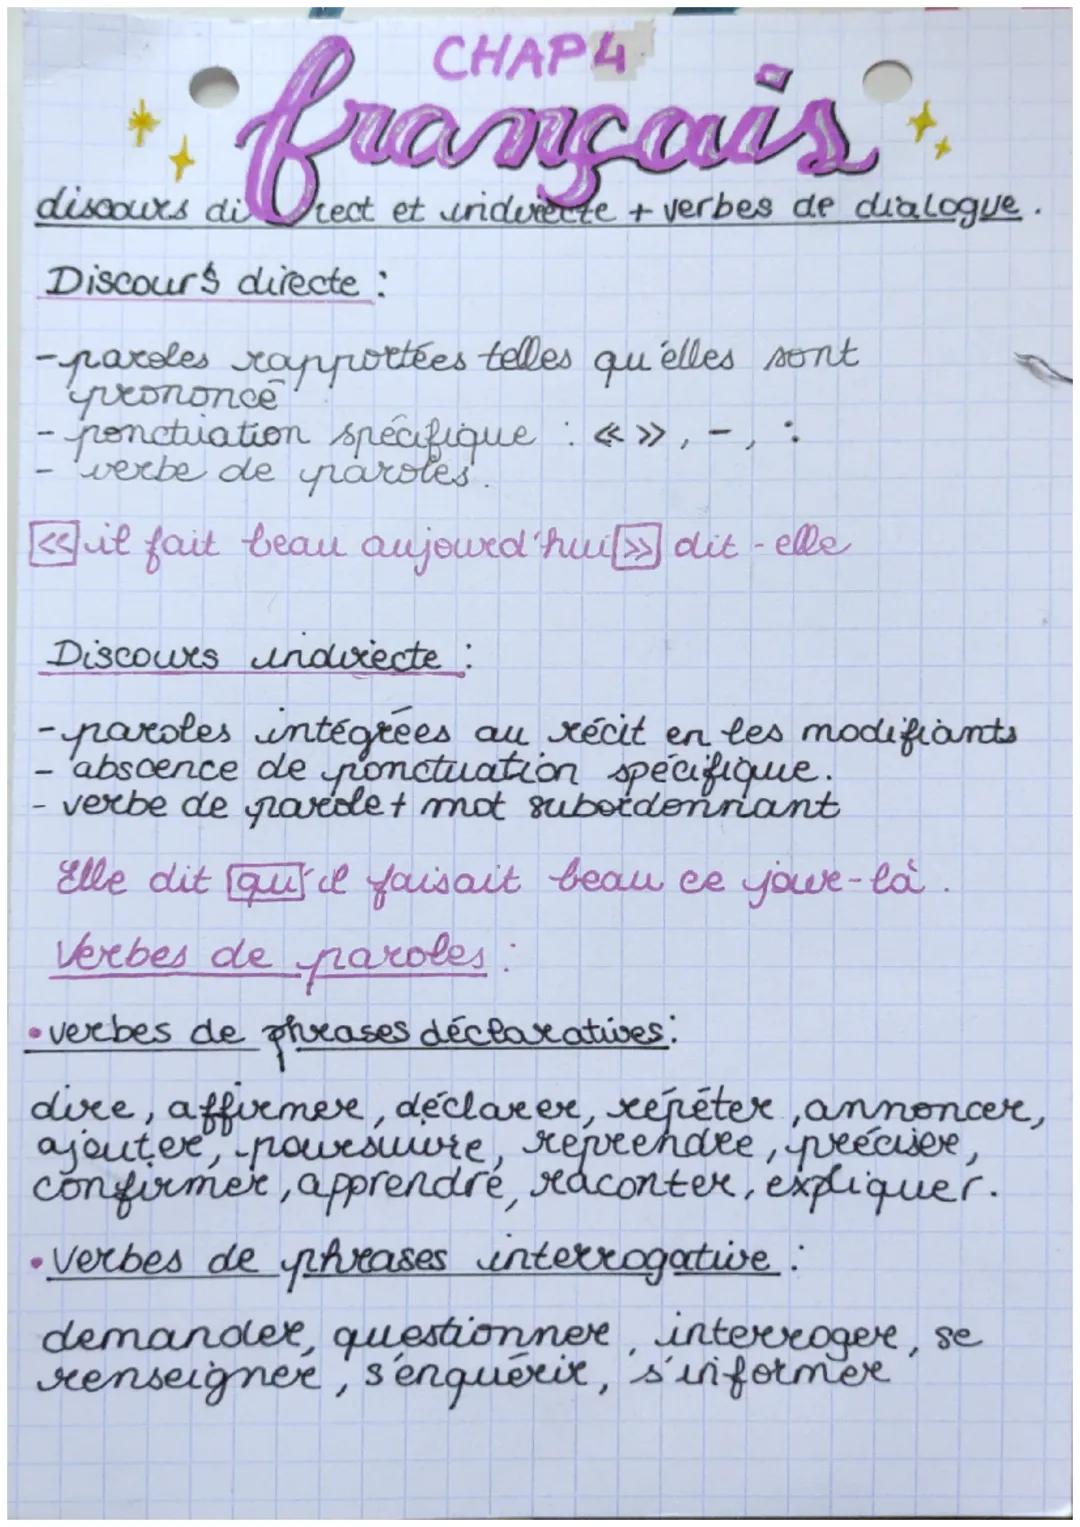 CHAP 4
français
discours direct et indirecte + verbes de dialogue.
Discours directe :
- paroles rapportées telles qu'elles sont
prononcé
- ponctuation spécifique : « », -, :
- verbe de paroles.
« il fait beau aujourd'hui » dit-elle
Discours indirecte :
- paroles intégrées au récit en les modifiants
- abscence de ponctuation spécifique.
- verbe de parole + mot subordonnant
Elle dit qu'il faisait beau ce jour-là.
Verbes de paroles :
• verbes de phrases déclaratives :
dire, affirmer, déclarer, répéter, annoncer,
ajouter, poursuivre, reprendre, préciser,
confirmer, apprendre, raconter, expliquer.
• Verbes de phrases interrogative :
demander, questionner, interroger, se
renseigner, s'enquérir, s'informer